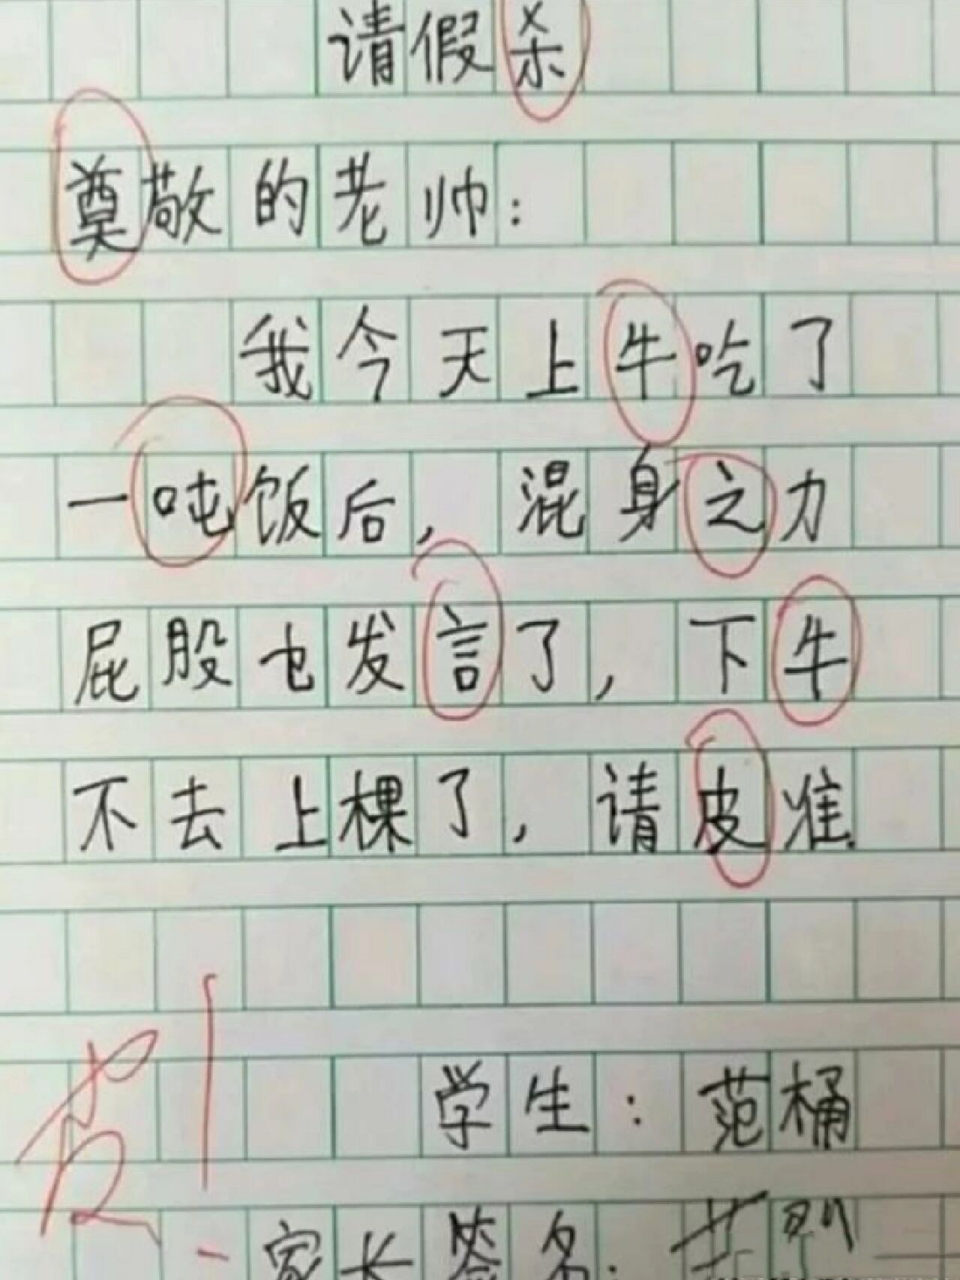 请假杀
奠敬的老帅：
我今天上牛吃了
一吨饭后，混身之力
屁股也发言了，下牛
不去上棵了，请皮准.
学生：范桶
家长签名：